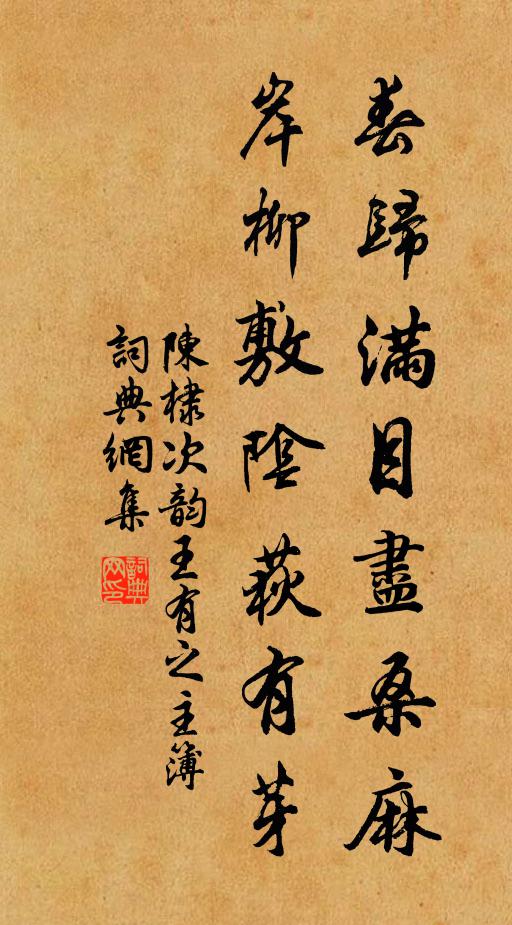 春歸滿目盡桑麻
岸柳敷陰萩有芽
陳棣次韵王有之主簿
詞典網集
詞典網印